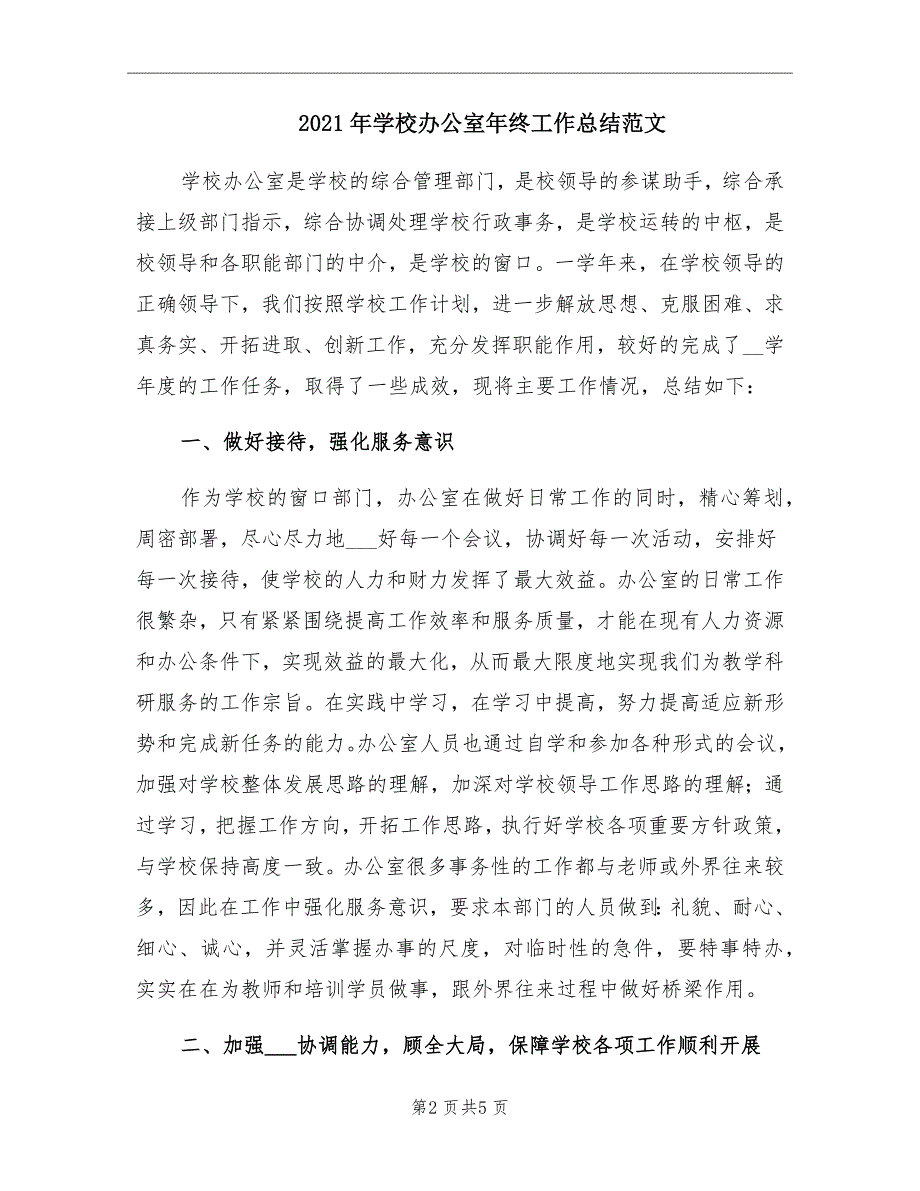 2021年学校办公室年终工作总结范文
学校办公室是学校的综合管理部门，是校领导的参谋助手，综合承
接上级部门指示，综合协调处理学校行政事务，是学校运转的中枢，是
校领导和各职能部门的中介，是学校的窗口。一学年来，在学校领导的
正确领导下，我们按照学校工作计划，进一步解放思想、克服困难、求
真务实、开拓进取、创新工作，充分发挥职能作用，较好的完成了__学
年度的工作任务，取得了一些成效，现将主要工作情况，总结如下：
一、做好接待，强化服务意识
作为学校的窗口部门，办公室在做好日常工作的同时，精心筹划，
周密部署，尽心尽力地___好每一个会议，协调好每一次活动，安排好
每一次接待，使学校的人力和财力发挥了最大效益。办公室的日常工作
很繁杂，只有紧紧围绕提高工作效率和服务质量，才能在现有人力资源
和办公条件下，实现效益的最大化，从而最大限度地实现我们为教学科
研服务的工作宗旨。在实践中学习，在学习中提高，努力提高适应新形
势和完成新任务的能力。办公室人员也通过自学和参加各种形式的会议，
加强对学校整体发展思路的理解，加深对学校领导工作思路的理解；通
过学习，把握工作方向，开拓工作思路，执行好学校各项重要方针政策，
与学校保持高度一致。办公室很多事务性的工作都与老师或外界往来较
多，因此在工作中强化服务意识，要求本部门的人员做到：礼貌、耐心、
细心、诚心，并灵活掌握办事的尺度，对临时性的急件，要特事特办，
实实在在为教师和培训学员做事，跟外界往来过程中做好桥梁作用。
二、加强___协调能力，顾全大局，保障学校各项工作顺利开展
第2 页共5 页